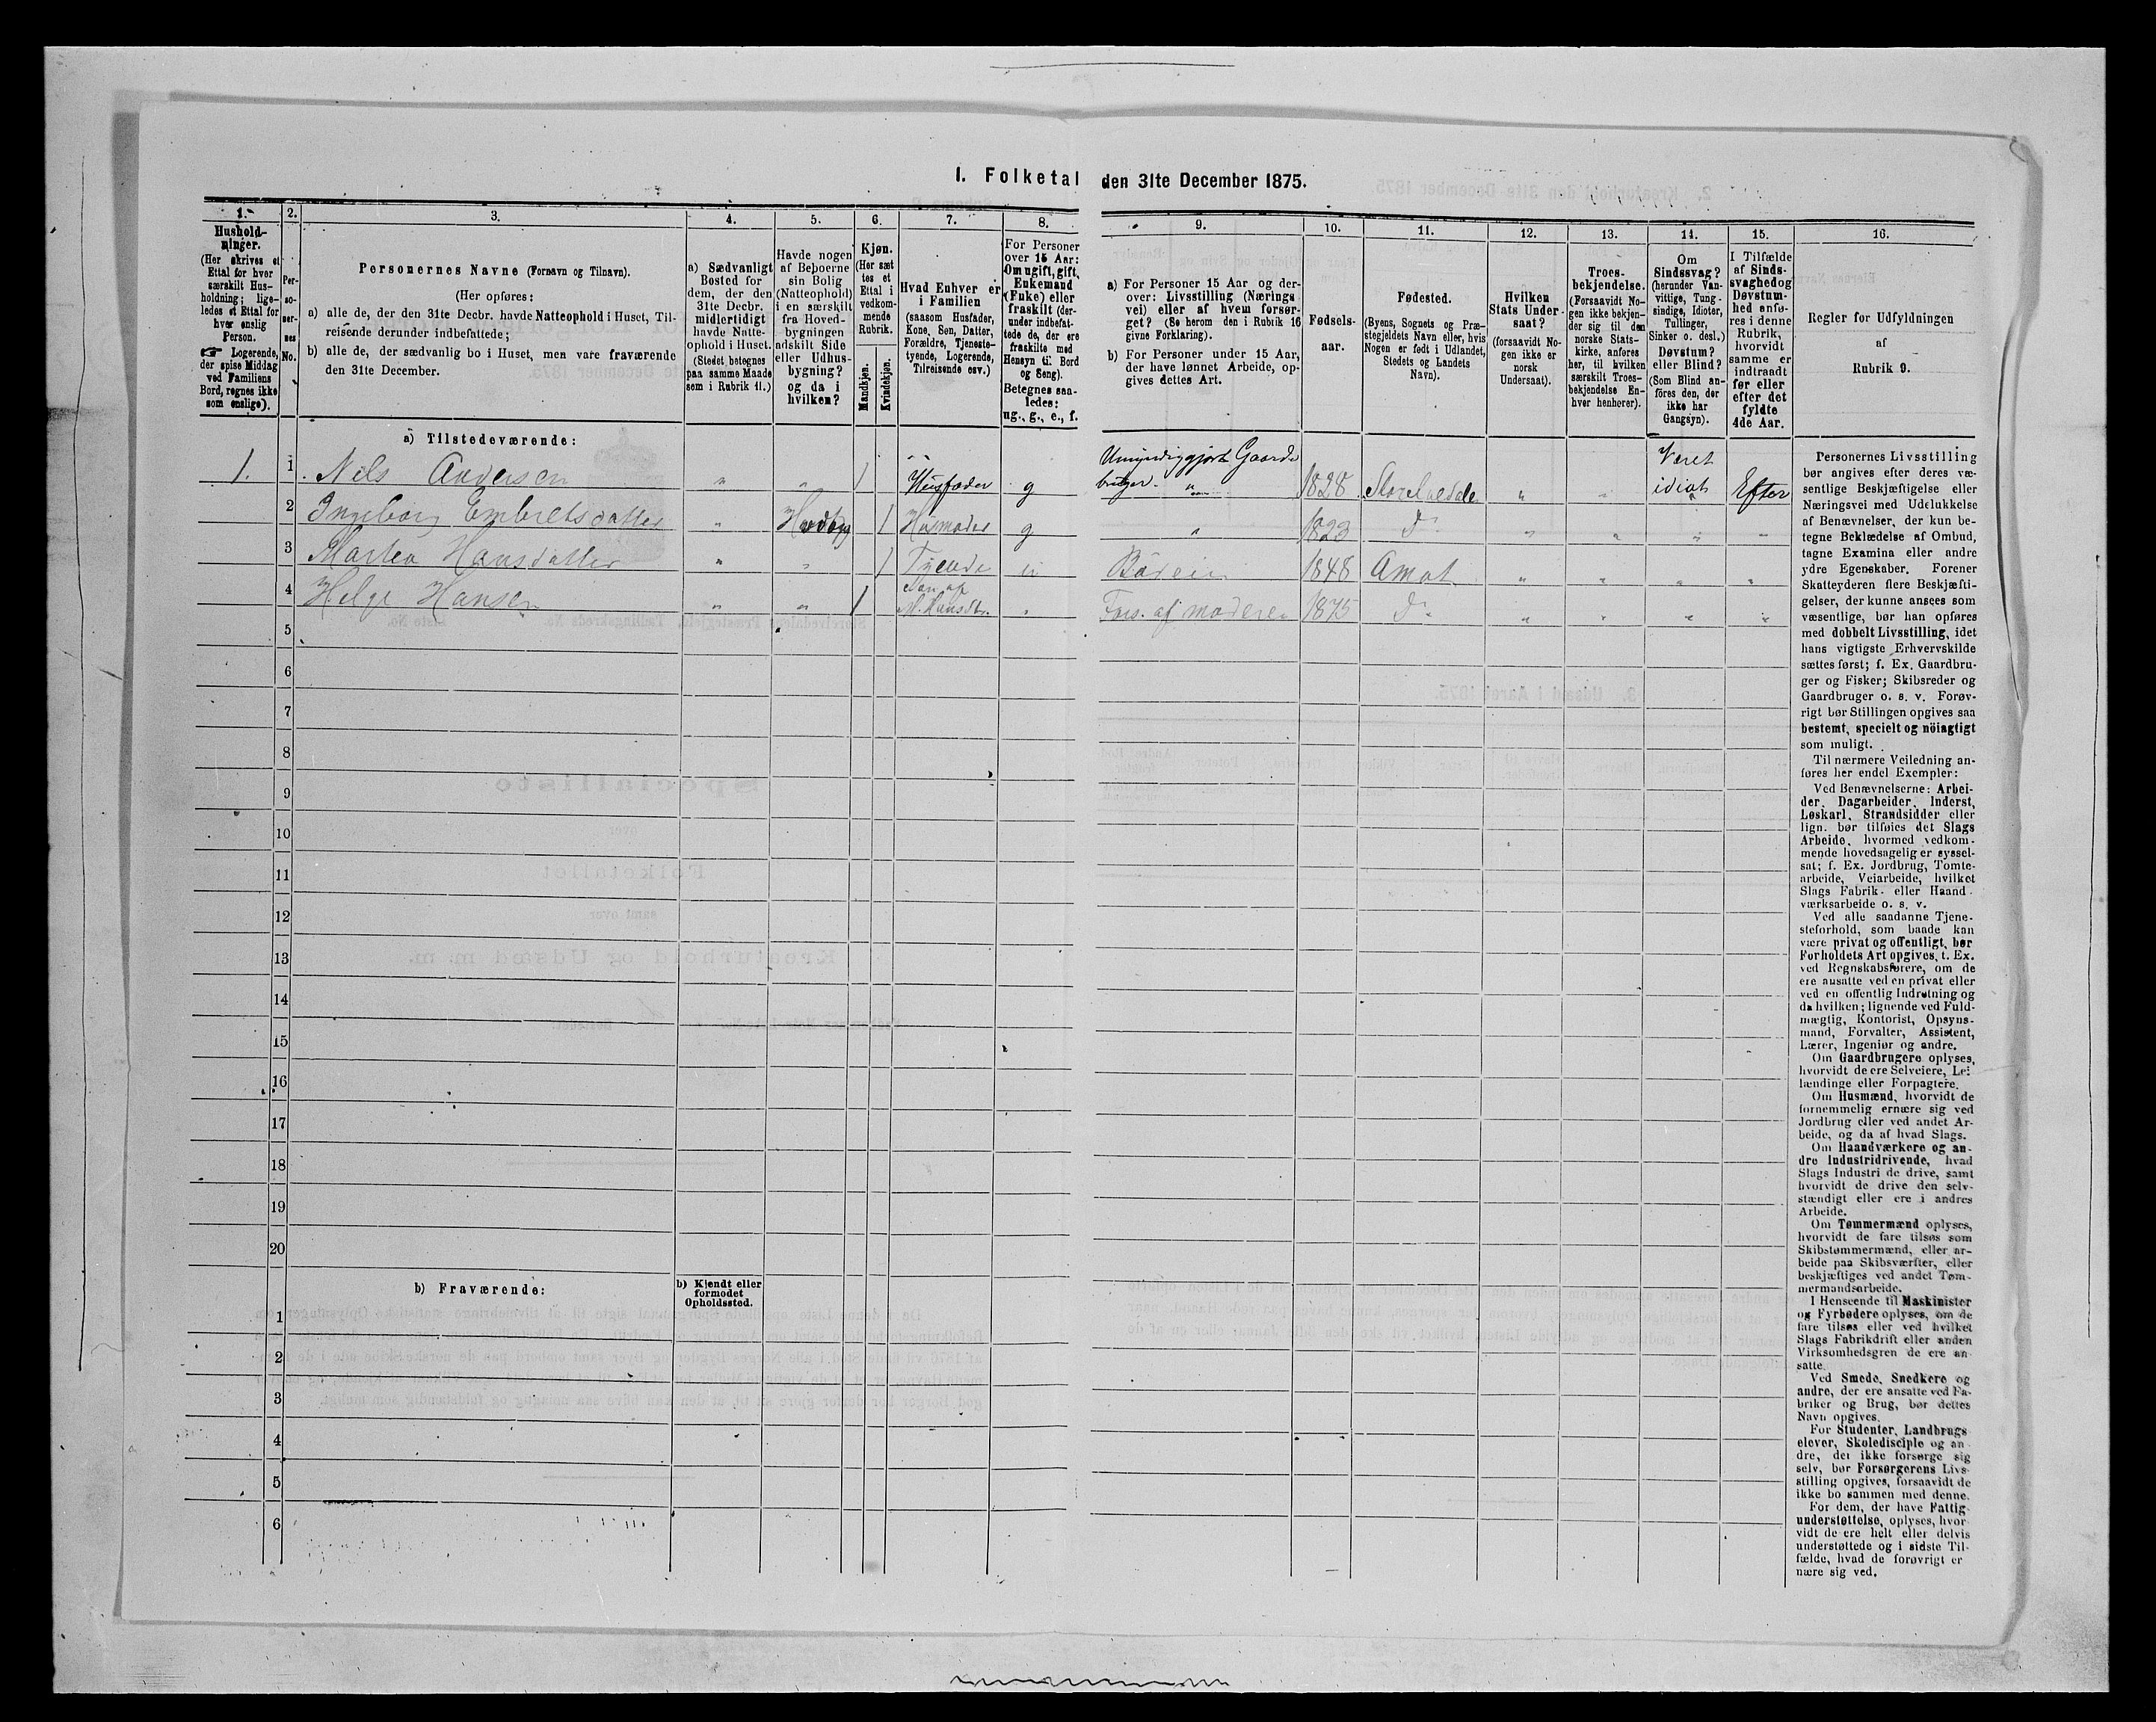 I. Folketal den 31te December 1875.
1. 2. 3. 4. 5. 6. 7. 8. 9. 10. 11. 12. 13. 14. 15. 16.
Hushold-
ninger.
(Her skrives et
Ettal for hver
særskilt Hus-
holdning; lige-
ledes et Ettal for
hver enslig
Person.
☞ Logerende,
der spise Middag
ved Familiens
Bord, regnes ikke
som enslige).
Per-
so-
ner-
nes
No.
Personernes Navne (Fornavn og Tilnavn).
(Her opføres:
a) alle de, der den 31te Decbr. havde Natteophold i Huset, Til-
reisende derunder indbefattede;
b) alle de, der sædvanlig bo i Huset, men vare fraværende
den 31te December.
a) Sædvanligt
Bosted for
dem, der den
31te Decbr.
midlertidigt
havde Natte-
ophold i Huset.
(Stedet betegnes
paa samme Maade
som i Rubrik 11.)
Havde nogen
af Beboerne
sin Bolig
(Natteophold)
i en særskilt
fra Hoved-
bygningen
adskilt Side
eller Udhus-
bygning?
og da i
hvilken?
Kjøn.
(Her sæt
tes et
Ettal i
vedkom-
mende
Rubrik.
Mandkjøn.
Kvindekjøn.
Hvad Enhver er
i Familien
(saasom Husfader,
Kone, Søn, Datter,
Forældre, Tjeneste-
tyende, Logerende,
Tilreisende osv.)
For Personer
over 15 Aar:
Om ugift, gift,
Enkemand
(Enke) eller
fraskilt (der-
under indbefat-
tede de, der ere
fraskilte med
Hensyn til Bord
og Seng).
Betegnes saa-
ledes:
ug., g., e., f.
a) For Personer 15 Aar og der-
over: Livsstilling (Nærings
vei) eller af hvem forsør-
get? (Se herom den i Rubrik 16
givne Forklaring).
b) For Personer under 15 Aar,
der have lønnet Arbeide, op-
gives dettes Art.
Fødsels-
aar.
Fødested.
(Byens, Sognets og Præ-
stegjeldets Navn eller, hvis
Nogen er født i Udlandet,
Stedets og Landets
Navn).
Hvilken
Stats Under-
saat?
(forsaavidt No-
gen ikke er
norsk
Undersaat).
Troes-
bekjendelse.
(Forsaavidt No-
gen ikke bekjen-
der sig til den
norske Stats-
kirke, anføres
her, til hvilken
særskilt Troes-
bekjendelse En-
hver henhører).
Om
Sindssvag?
(herunder Van-
vittige, Tung-
sindige, Idioter,
Tullinger,
Sinker o. desl.)
Døvstum?
eller Blind?
(Som Blind an-
föres den, der
ikke har
Gangsyn).
I Tilfælde
af Sinds-
svaghed og
Døvstum-
hed anfø-
res i denne
Rubrik,
hvorvidt
samme er
indtraadt
før eller
efter det
fyldte
4de Aar.
Regler for Udfyldningen
af
Rubrik 9.
a) Tilstedeværende:
1. 1 Nels Andersen " " 1 Husfader g Umyndiggjort Gaardbruger. " 1828 Storelvedale " " Været idiot Efter
2 Ingeborg Embretsdatter " Hovedbyg 1 Husmoder g " 1823 Do " " " "
3 Marten Hansdatter " " 1 Tyende Budeie 1848 Amot " " " "
4 Helge Hansen " " 1 Søn af M. Hansdtr. " Fors. af moderen 1875 Do " " " "
5
6
7
8
9
10
11
12
13
14
15
16
17
18
19
20
b) Fraværende:
b) Kjendt eller
formodet
Opholdssted.
1
2
3
4
5
6
Personernes Livsstilling
bør angives efter deres væ-
sentlige Beskjæftigelse eller
Næringsvei med Udelukkelse
af Benævnelser, der kun be-
tegne Beklædelse af Ombud,
tagne Examina eller andre
ydre Egenskaber. Forener
Skatteyderen flere Beskjæfti-
gelser, der kunne ansees som
væsentlige, bør han opføres
med dobbelt Livsstilling, idet
hans vigtigste Erhvervskilde
sættes først; f. Ex. Gaardbru-
ger og Fisker; Skibsreder og
Gaardbruger o. s. v. Forøv-
rigt bør Stillingen opgives saa
bestemt, specielt og nöiagtigt
som muligt.
Til nærmere Veiledning an-
føres her endel Exempler:
Ved Benævnelserne: Arbei-
der, Dagarbeider, Inderst,
Løskarl, Strandsidder eller
lign. bør tilføies det Slags
Arbeide, hvormed vedkom-
mende hovedsagelig er syssel-
sat; f. Ex. Jordbrug, Tomte-
arbeide, Veiarbeide, hvilket
Slags Fabrik- eller Haand-
værksarbeide o. s. v.
Ved alle saadanne Tjene-
steforhold, som baade kan
være privat og offentligt, bør
Forholdets Art opgives, t. Ex.
ved Regnskabsførere, om de
ere ansatte ved en privat eller
ved en offentlig Indretning og
da hvilken; lignende ved Fuld-
mægtig, Kontorist, Opsyns-
mand, Forvalter, Assistent,
Lærer, Ingeniør og andre.
Om Gaardbrugere oplyses,
hvorvidt de ere Selveiere, Lei
lændinge eller Forpagtere.
Om Husmænd, hvorvidt de
fornemmelig ernære sig ved
Jordbrug eller ved andet Ar-
beide, og da af hvad Slags.
Om Haandværkere og an-
dre Industridrivende, hvad
Slags Industri de drive, samt
hvorvidt de drive den selv-
stændigt eller ere i andres
Arbeide.
Om Tømmermænd oplyses,
hvorvidt de fare tilsøs som
Skibstømmermænd, eller ar-
beide paa Skibsværfter, eller
beskjæftiges ved andet Tøm-
mermandsarbeide.
I Henseende til Maskinister
og Fyrbødere oplyses, om de
fare tilsøs eller ved hvilket
Slags Fabrikdrift eller anden
Virksomhedsgren de ere an-
satte.
Ved Smede, Snedkere og
andre, der ere ansatte ved Fa-
briker og Brug, bør dettes
Navn opgives.
For Studenter, Landbrugs
elever, Skoledisciple og an-
dre, der ikke forsørge sig
selv, bør Forsørgerens Livs-
stilling opgives, forsaavidt de
ikke bo sammen med denne.
For dem, der have Fattig-
understøttelse, oplyses, hvor-
vidt de ere helt eller delvis
understøttede og i sidste Til-
fælde, hvad de forøvrigt er
nære sig ved.